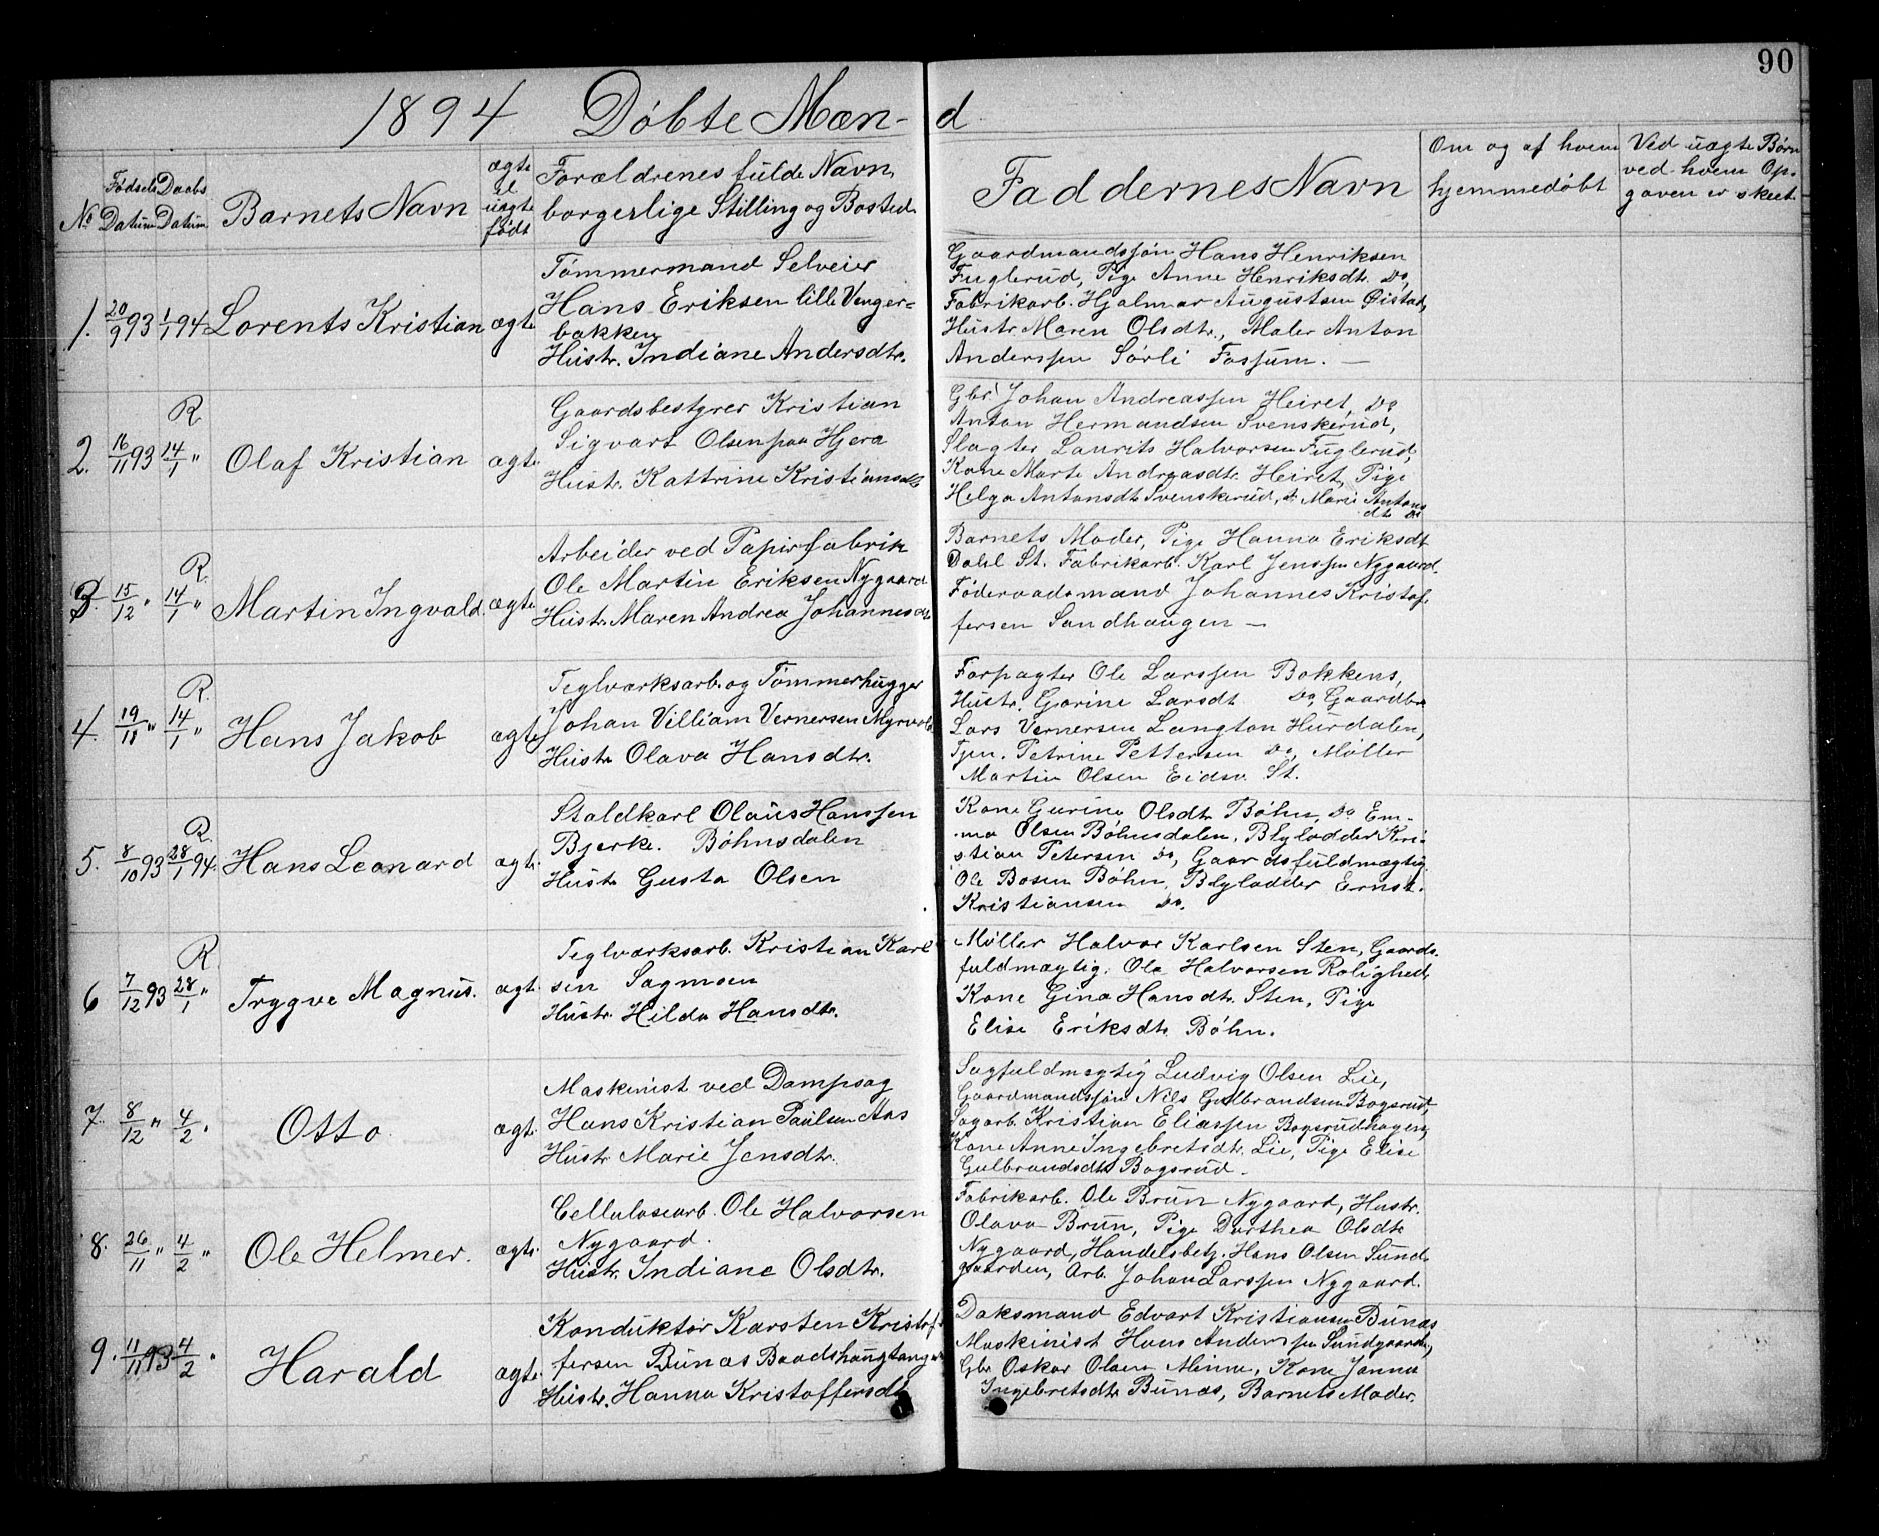 90
1894 Döbte Mæn- d
No Fødsels Datum Daabs Datum Barnets Navn ægte el. uægte født Forældrenes fulde Navn, borgerlige Stilling og Bosted. Faddernes Navn Om og af hvem hjemmedøbt Ved uægte Børn ved hvem Op- gaven er skeet.
1. 20/9 93 1/1 94 Lorents Kristian ægte
Tømmermand Selveier
Hans Eriksen lille Venger-
bakken
Hustr. Indiane Andersdtr.
Gaardmandssøn Hans Henriksen
Fuglerud, Pige Anne Henriksdtr. Do,
Fabrikarb. Hjalmar Augustsen Øistad,
Hustr. Maren Olsdtr., Maler Anton
Anderssen Sörli Fossum. —
2. 16/11 93 R 14/1 " Olaf Kristian ægte
Gaardsbestyrer Kristian
Sigvart Olsen paa Hjera
Hustr. Kattrine Kristiansdt
Gbr. Johan Andreassen Heiret, Do
Anton Hermandsen Svenskerud,
Slagter Laurits Halvorsen Fuglerud,
Kone Marte Andreasdtr. Heiret, Pige
Helga Antonsdt Svenskerud, d. Marie Antons
dtr Do
3. 15/12 " R. 14/1 " Martin Ingvald. ægte
Arbeider ved Papirfabrik
Ole Martin Eriksen Nygaard
Hustr. Maren Andrea Johannesdt
Barnets Moder, Pige Hanna Eriksdt
Dahl St. Fabrikarb. Karl Jenssen Nygaard.
Føderaadsmand Johannes Kristof-
fersen Sandhaugen —
4. 19/11 " R. 14/1 " Hans Jakob ægte
Teglværksarb. og Tømmerhugger
Johan Villiam Vernersen Myrvold
Hustr Olava Hansdtr.
Forpagter Ole Larssen Bakkens,
Hustr. Gorine Larsdt Do, Gaardbr
Lars Vernersen Langton Hurdalen,
Tjen. Petrine Pettersen Do, Møller
Martin Olsen Eidsv. St.
5. 8/10 93 R. 28/1 94. Hans Leonard ægt.
Staldkarl Olaus Hanssen
Bjerke. Bøhnsdalen
Hustr Gusta Olsen
Kone Gurine Olsdtr Bøhn, Do Em-
ma Olsen Bøhnsdalen, Blyladder Kri-
stian Petersen Do, Gaardsfuldmægtig
Ole Bosen Bøhn, Blyladder Ernst.
Kristiansen Do.
6 7/12 93 R. 28/1 " Trygve Magnus. ægt.
Teglværksarb. Kristian Karl
sen Sagmoen
Hustr. Hilda Hansdtr.
Møller Halvor Karlsen Sten, Gaards-
fuldmægtig. Ole Halvorsen Rolighed,
Kone Gina Hansdtr. Sten, Pige
Elise Eriksdtr. Bøhn.
7. 8/12 " 4/2 . Otto ægt.
Maskinist ved Dampsag
Hans Kristian Paulsen Aas
Hustr Marie Jensdtr.
Sagfuldmægtig Ludvig Olsen Lie,
Gaardmandssøn Nils Gulbrandsen Bogsrud,
Sagarb. Kristian Eliassen Bogsrudhagen,
Kone Anne Ingebretsdtr. Lie, Pige Elise
Gulbrandsdtr Bogsrud.
8. 26/11 " 4/2 " Ole Helmer. ægte.
Cellulosearb. Ole Halvorsen
Nygaard.
Hustr. Indiane Olsdtr.
Fabrikarb. Ole Brun Nygaard, Hustr.
Olava Brun, Pige Dorthea Olsdtr
Nygaard, Handelsbetj. Hans Olsen Sund-
gaarden, Arb. Johan Larssen Nygaard.
9. 11/11 93 4/2 . Harald ægte.
Konduktør Karsten Kristof-
fersen Bunæs Baadshaugtangen
Hustr. Hanna Kristoffersdt
Daksmand Edvart Kristiansen Bunæs
Maskinist Hans Anderssen Sundgaarden,
Gbr Oskar Olsen Minne, Kone Janna
Ingebretsdtr Bunæs, Barnets Moder.